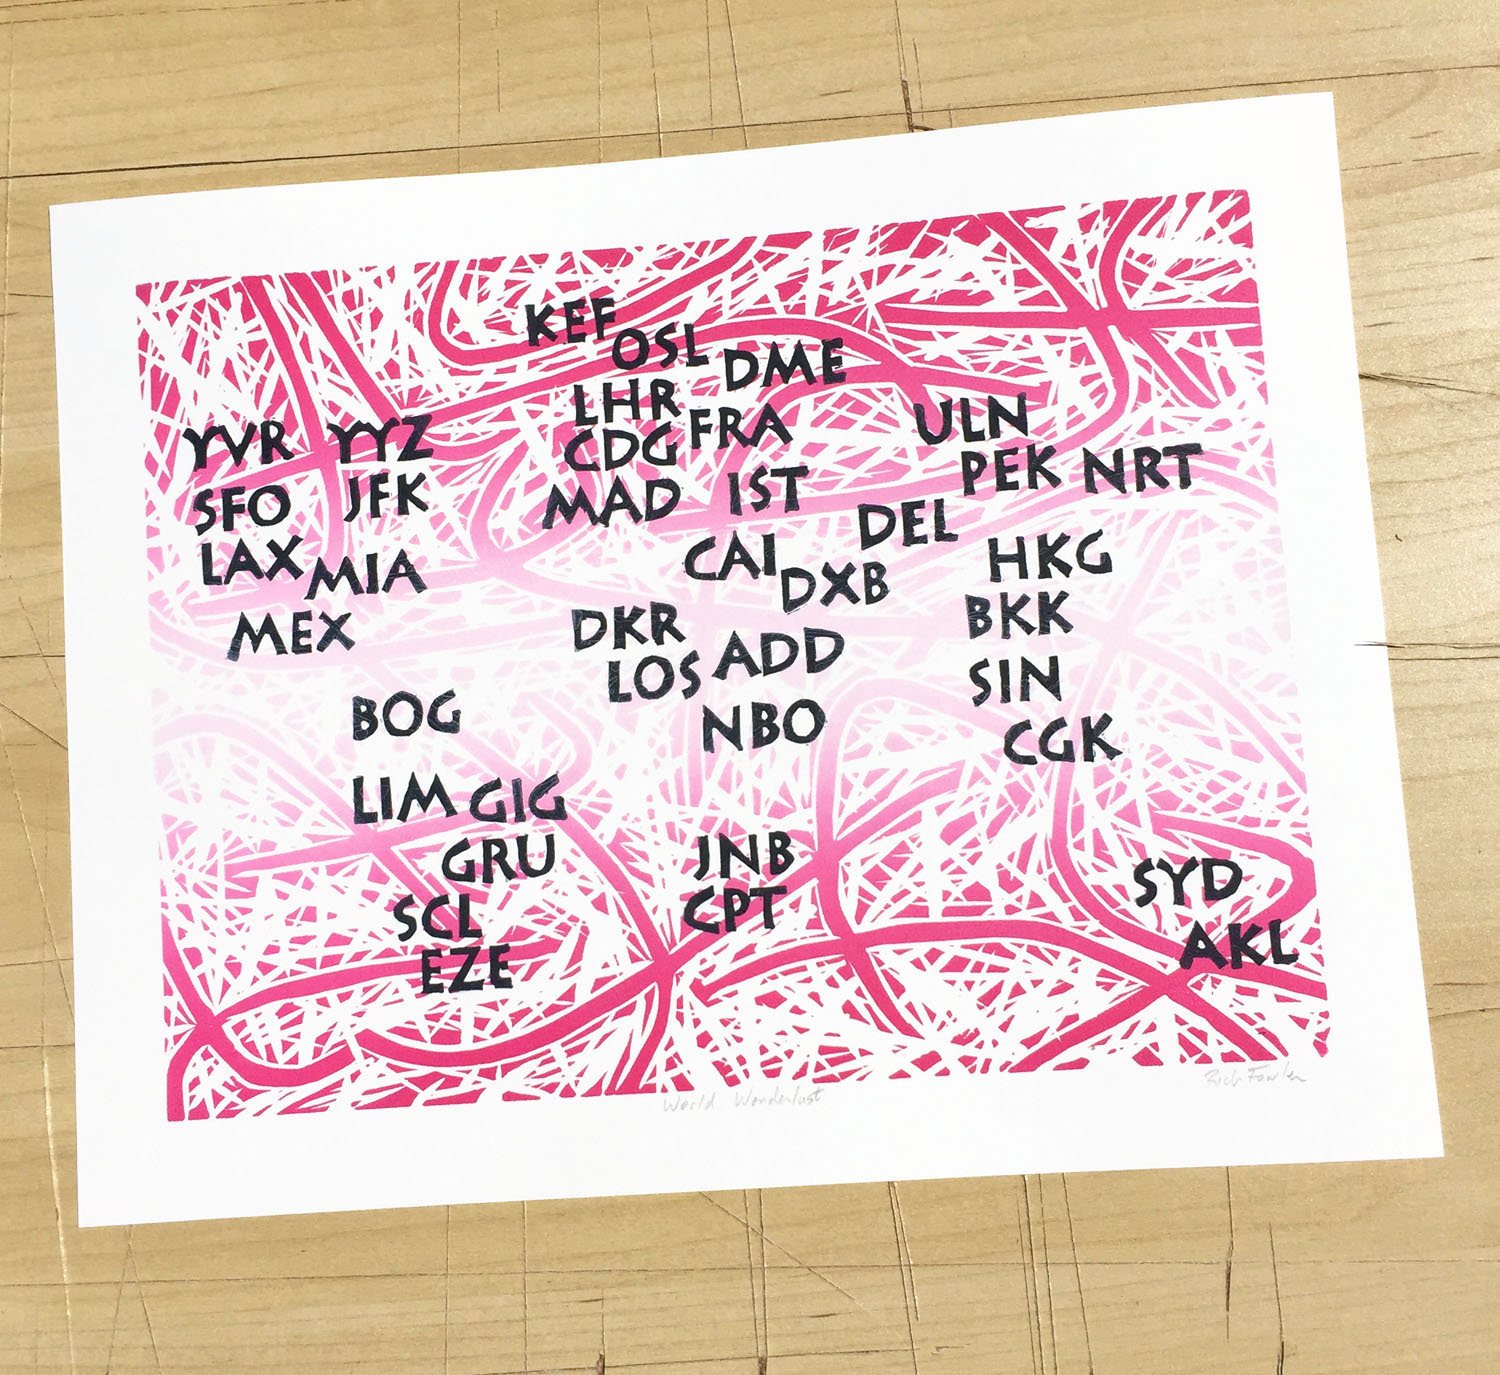 KEF
OSL
DME
LHR
FRA
CDG
ULN
YVR YYZ
PEK NRT
SFO JFK
MAD
IST
DEL
LAX MIA
CAI
DXB
HKG
MEX
DKR
BKK
LOS ADD
SIN
BOG
NBO
CGK
LIM GIG
GRU
JNB
SYD
SCL
CPT
EZE
AKL
World Wonderlust
Rich Fowler